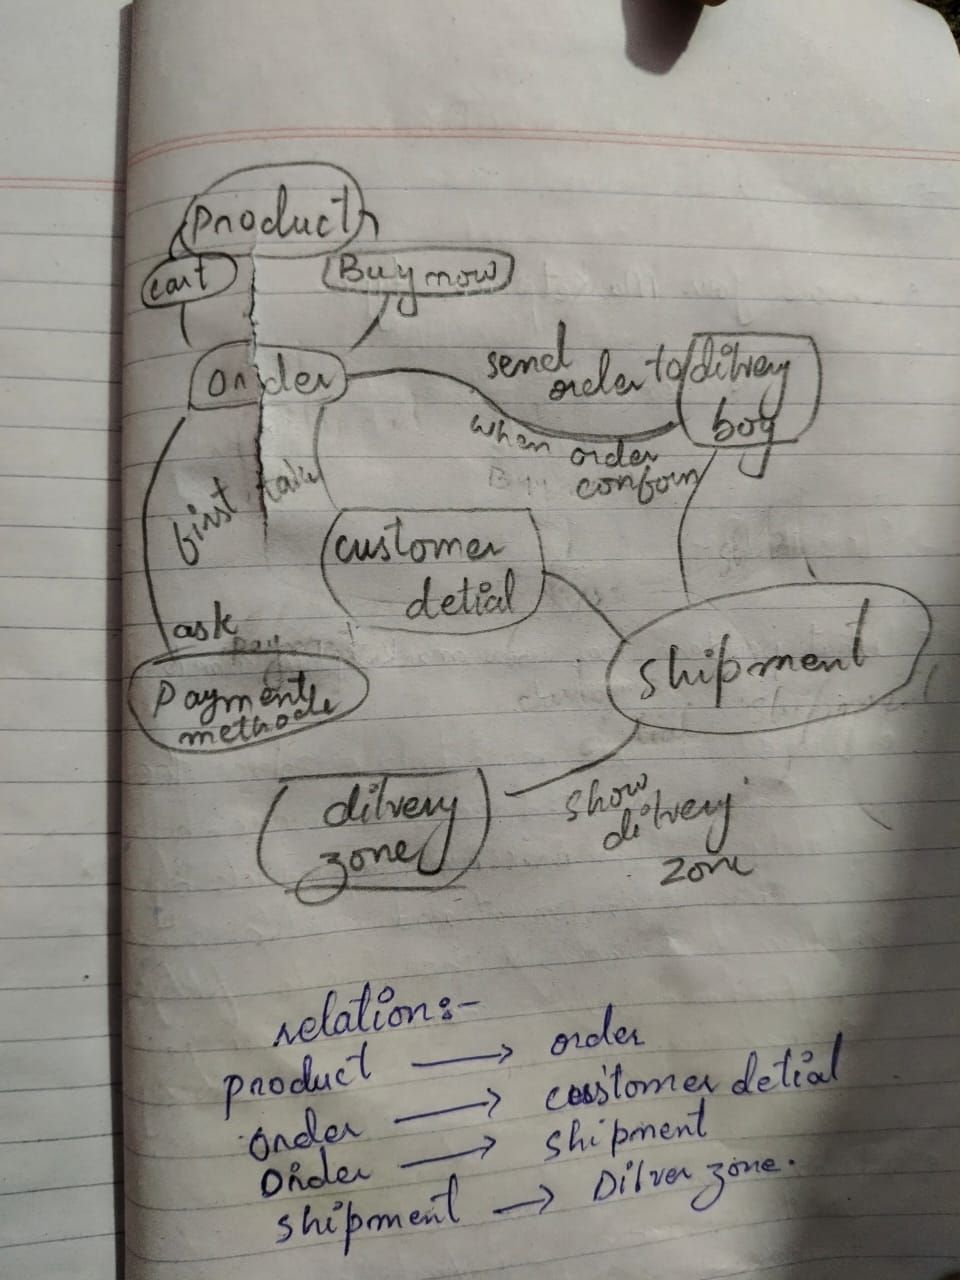 product
cart
Buy now
order
send
order to
dilvery
boy
when
order
conform
first
take
customer
detial
ask
payment
methode
shipment
dilvery
zone
show
dilvery
zone
relation:-
product → order
order → customer detial
order → shipment
shipment → Dilver zone.